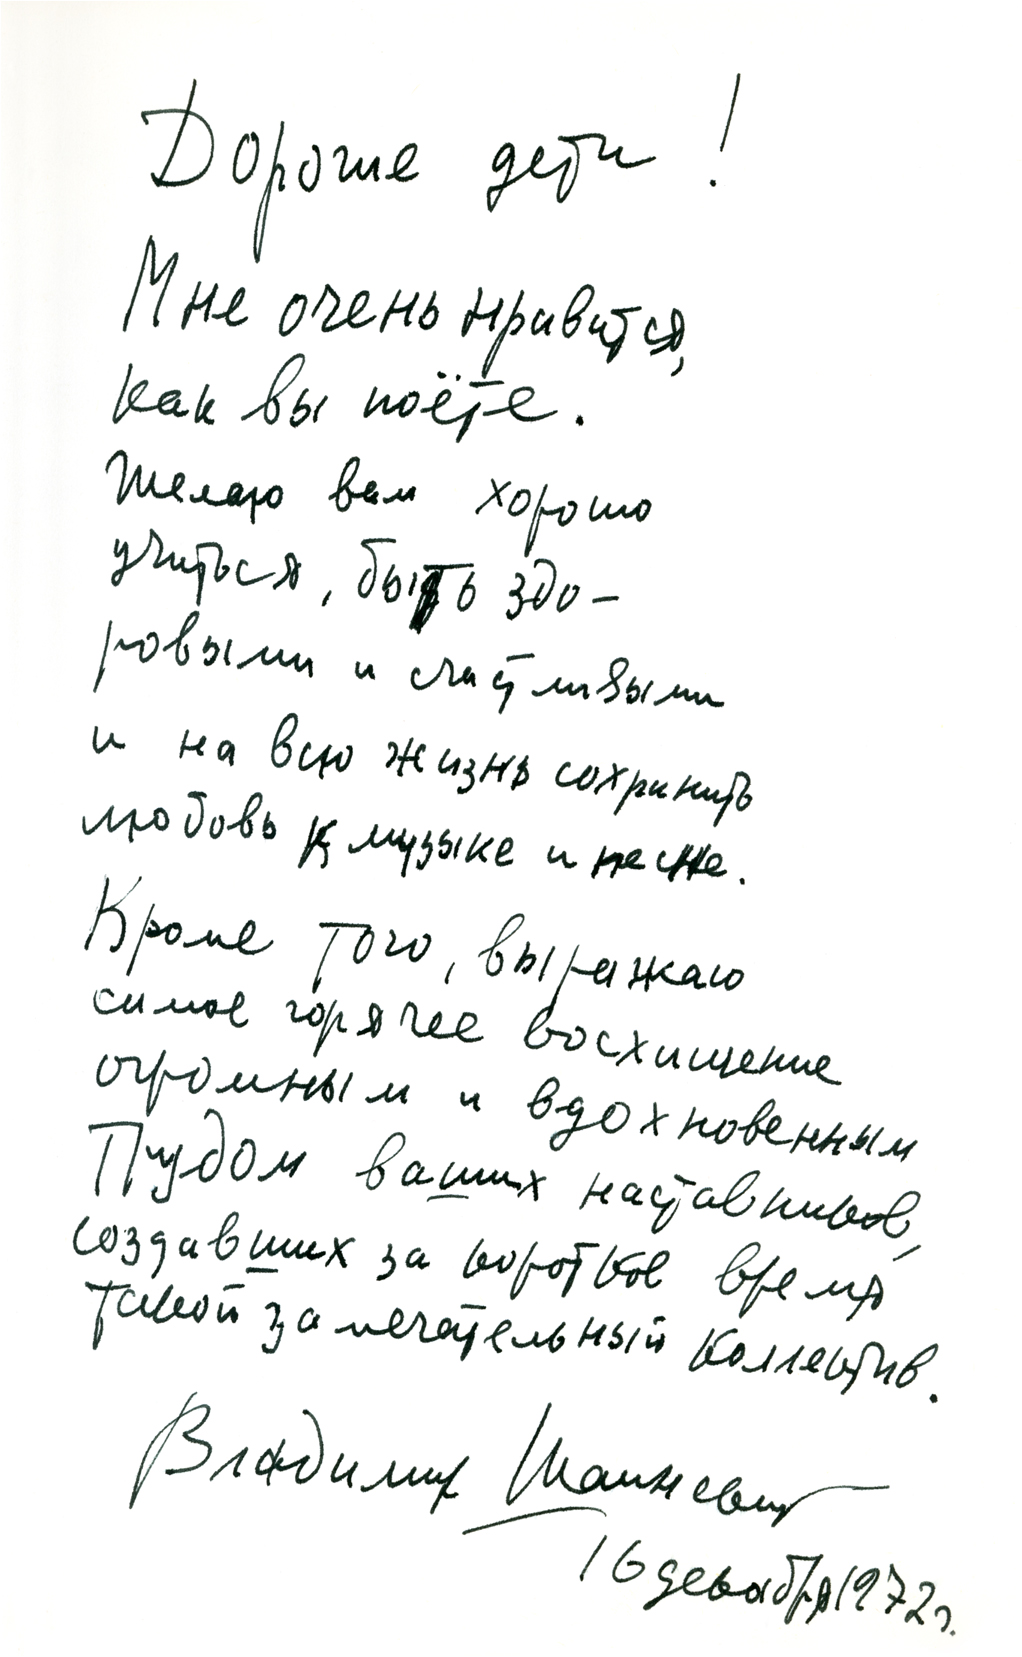 Дорогие дети!
Мне очень нравится,
как вы поёте.
Желаю вам хорошо
учиться, быть здо-
ровыми и счастливыми
и на всю жизнь сохранить
любовь к музыке и песне.
Кроме того, выражаю
самое горячее восхищение
огромным и вдохновенным
трудом ваших наставников,
создавших за короткое время
такой замечательный коллектив.
Владимир Шаинский
16 декабря 1972 г.